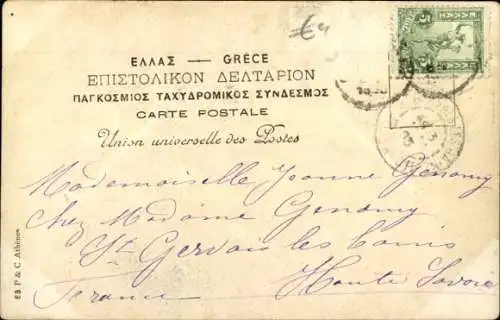 ΕΛΛΑΣ — GRÈCE
ΕΠΙΣΤΟΛΙΚΟΝ ΔΕΛΤΑΡΙΟΝ
ΠΑΓΚΟΣΜΙΟΣ ΤΑΧΥΔΡΟΜΙΚΟΣ ΣΥΝΔΕΣΜΟΣ
CARTE POSTALE
Union universelle des Postes
Mademoiselle Yvonne Genamy
Chez Madame Genamy
St Gervais les bains
Haute Savoie
France
ΕΛΛΑΣ
5
P & C Athènes